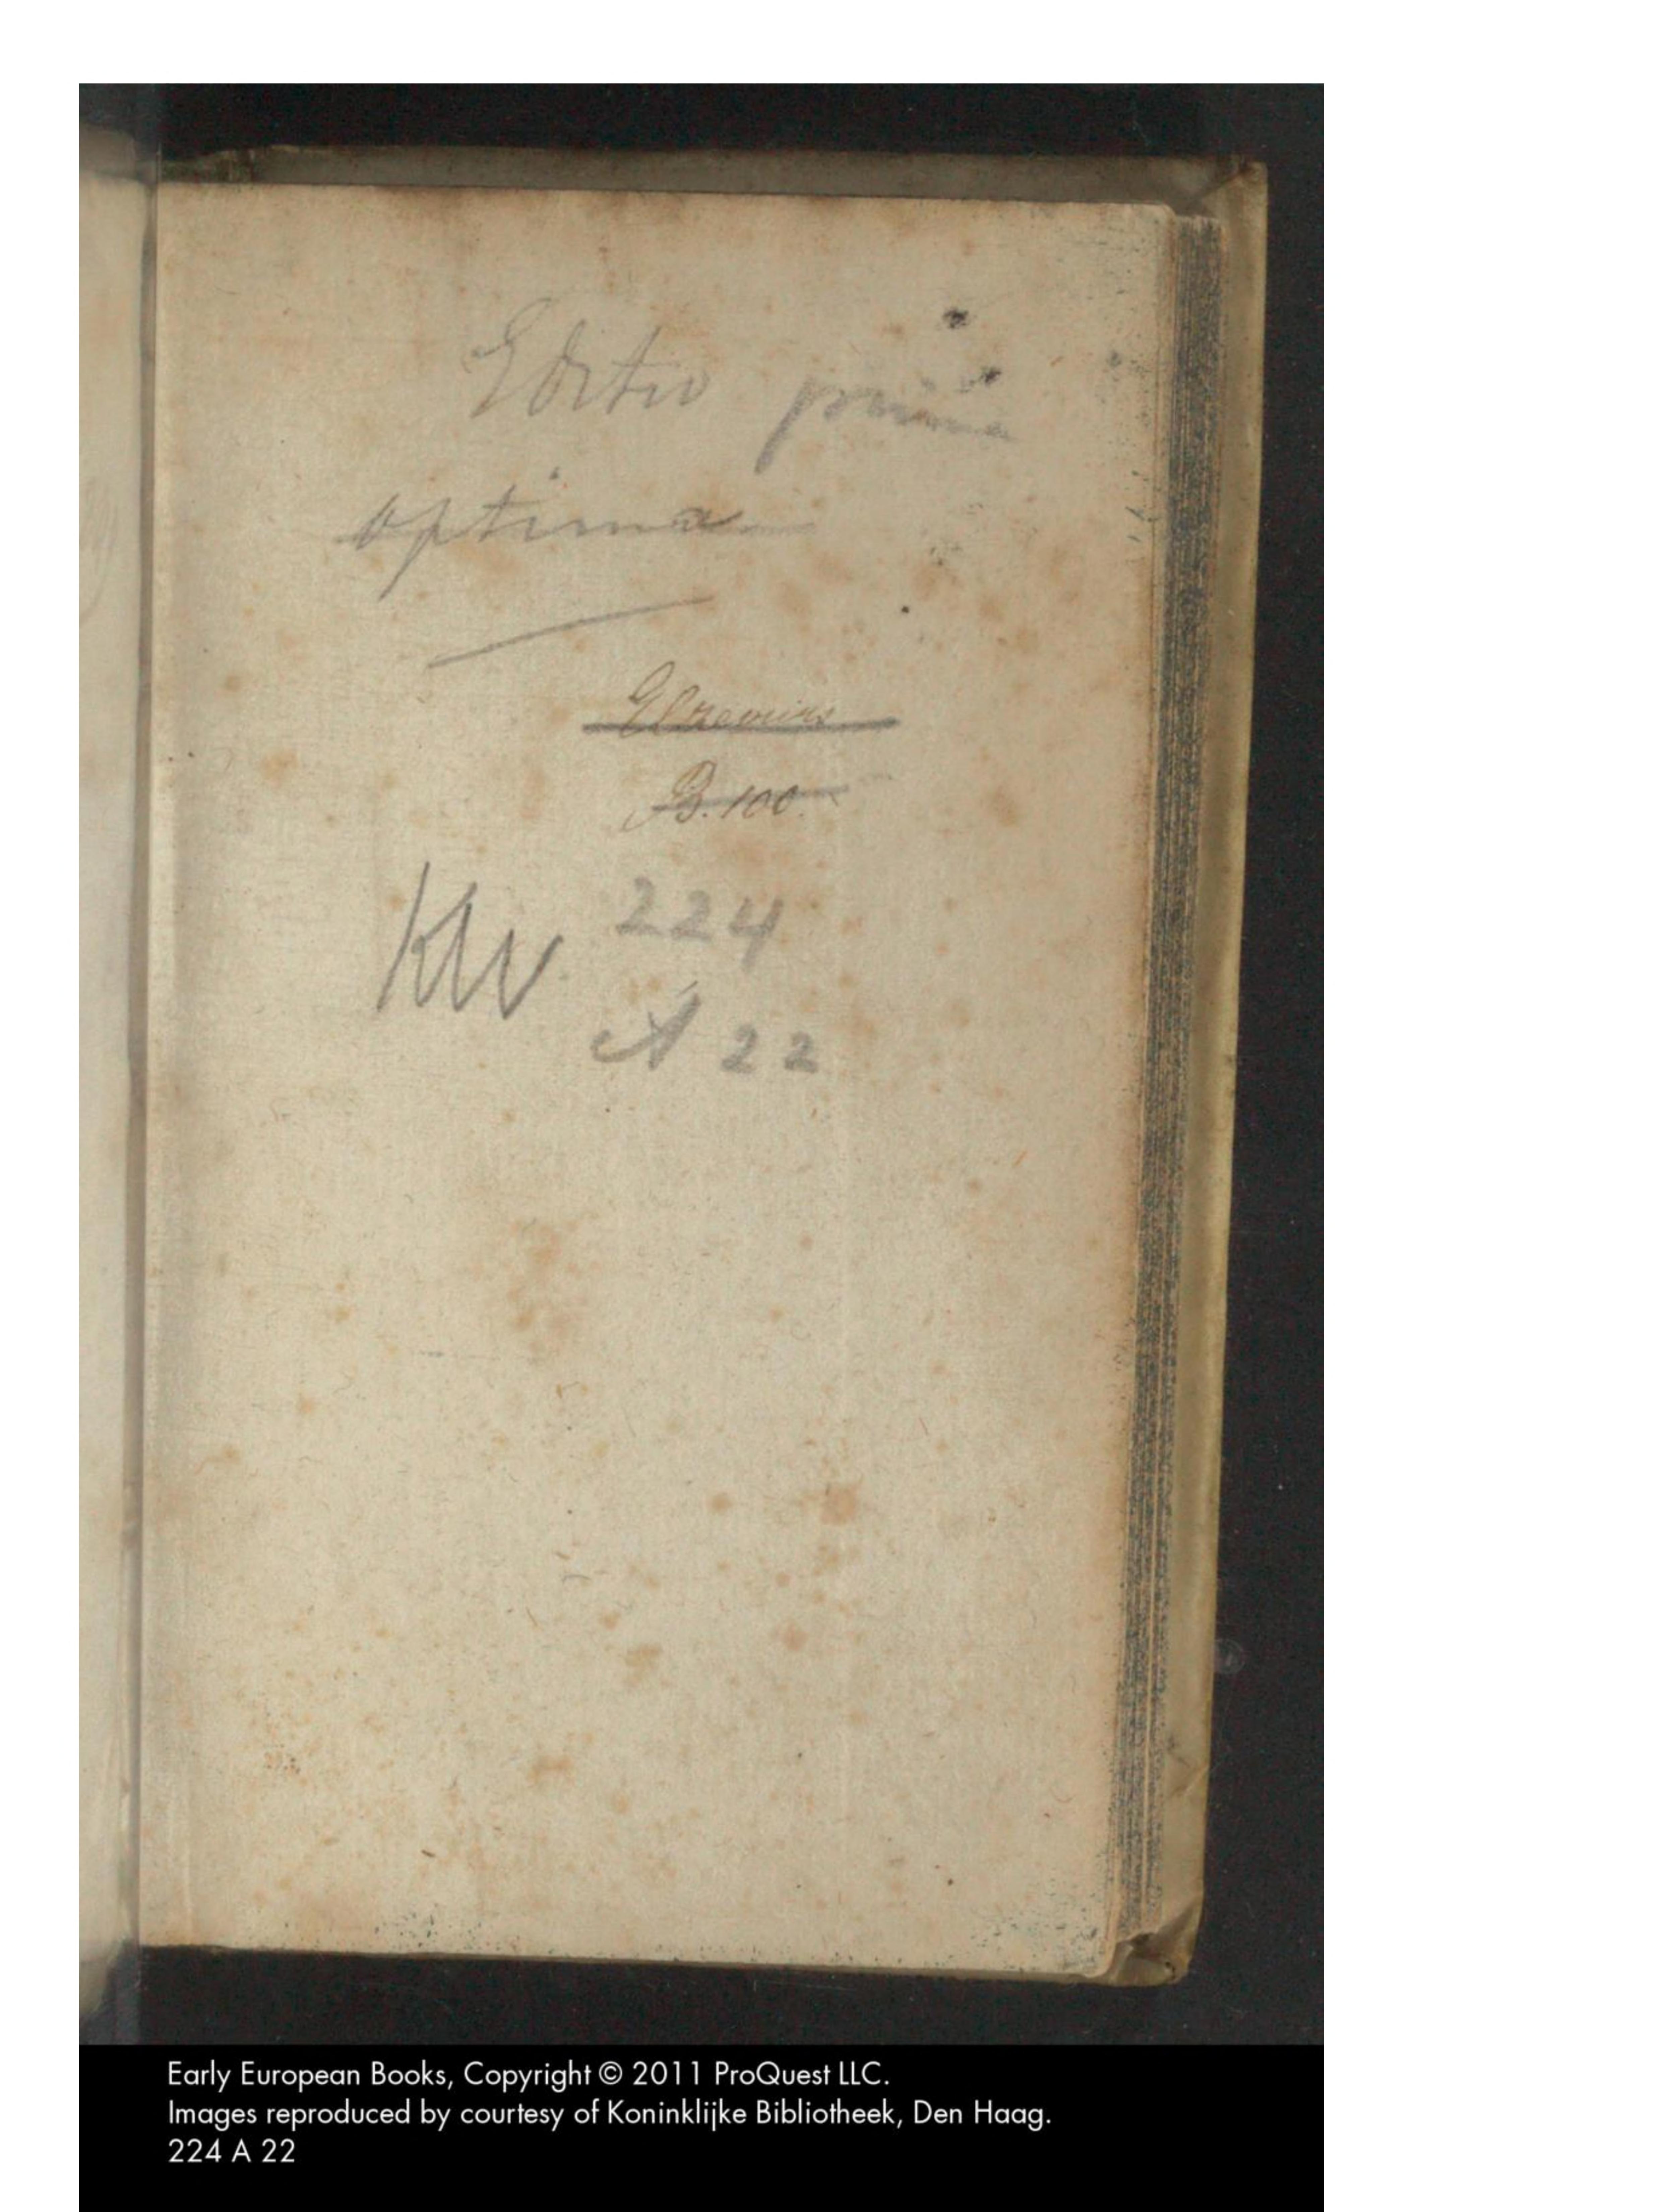 Editio prima
optima
Elzeviers
B. 100.
KW 224
A 22
Early European Books, Copyright © 2011 ProQuest LLC.
Images reproduced by courtesy of Koninklijke Bibliotheek, Den Haag.
224 A 22